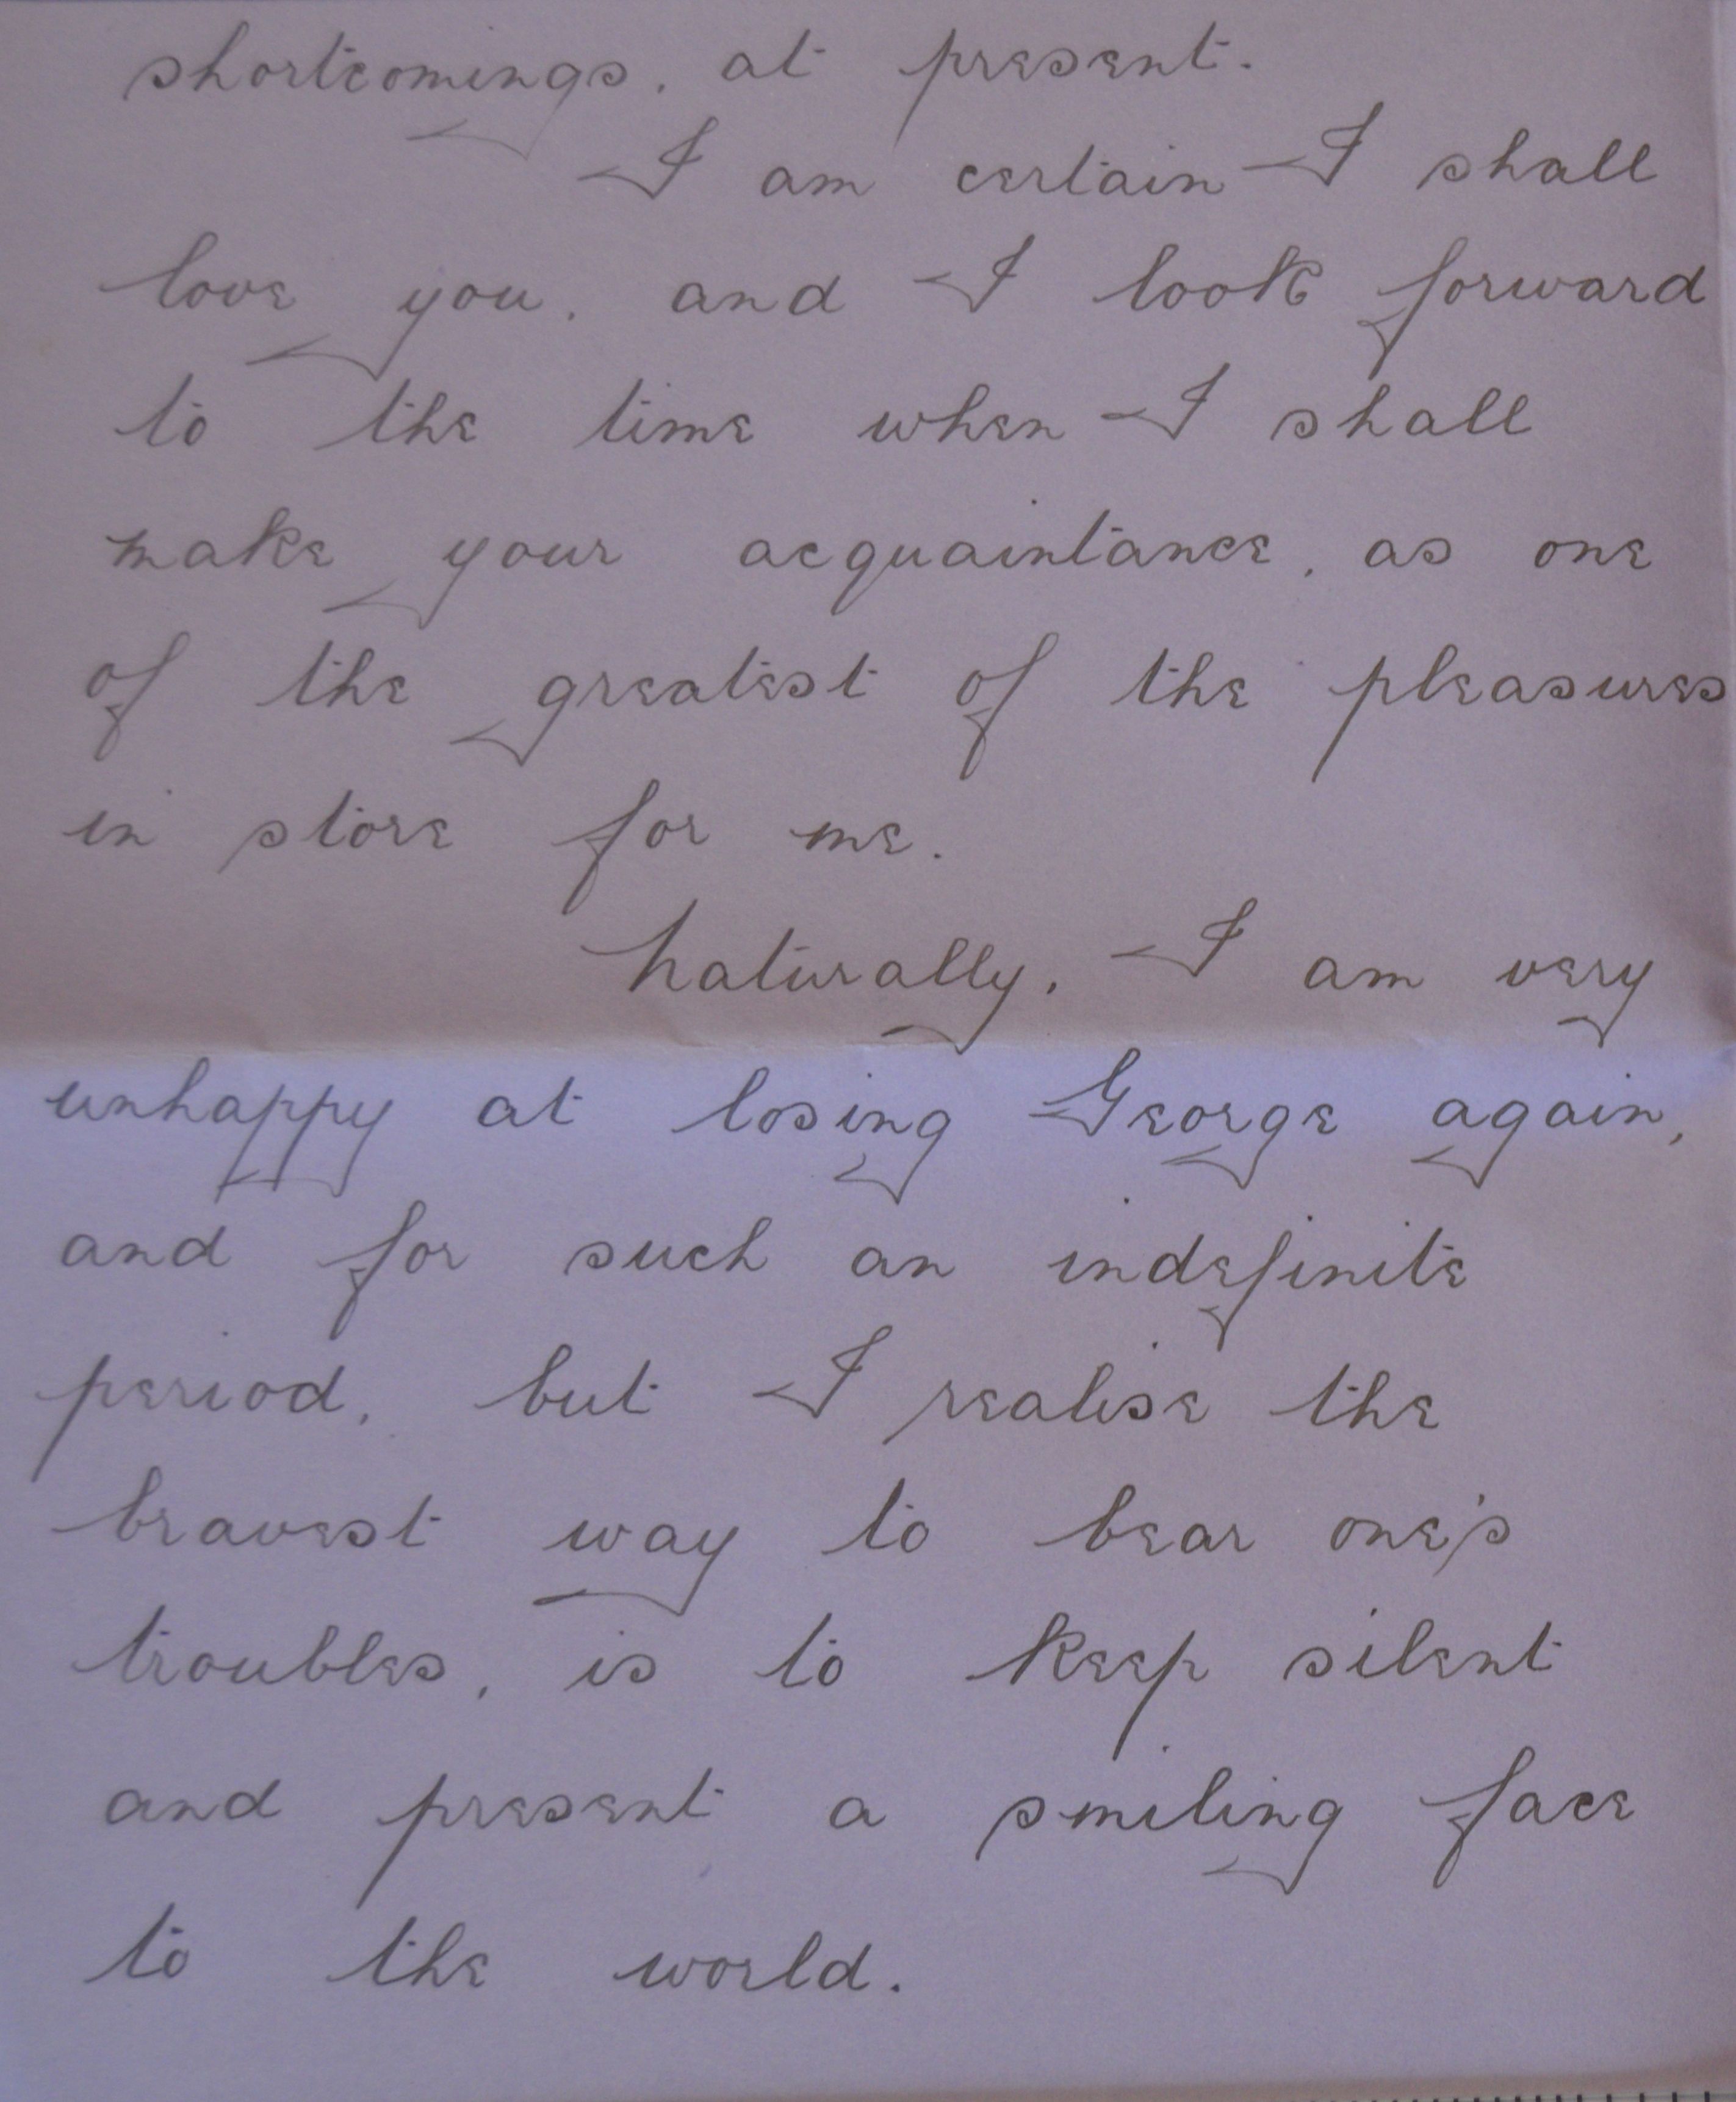 shortcomings, at present.
I am certain I shall
love you, and I look forward
to the time when I shall
make your acquaintance, as one
of the greatest of the pleasures
in store for me.
Naturally, I am very
unhappy at losing George again,
and for such an indefinite
period, but I realise the
bravest way to bear one's
troubles, is to keep silent
and present a smiling face
to the world.